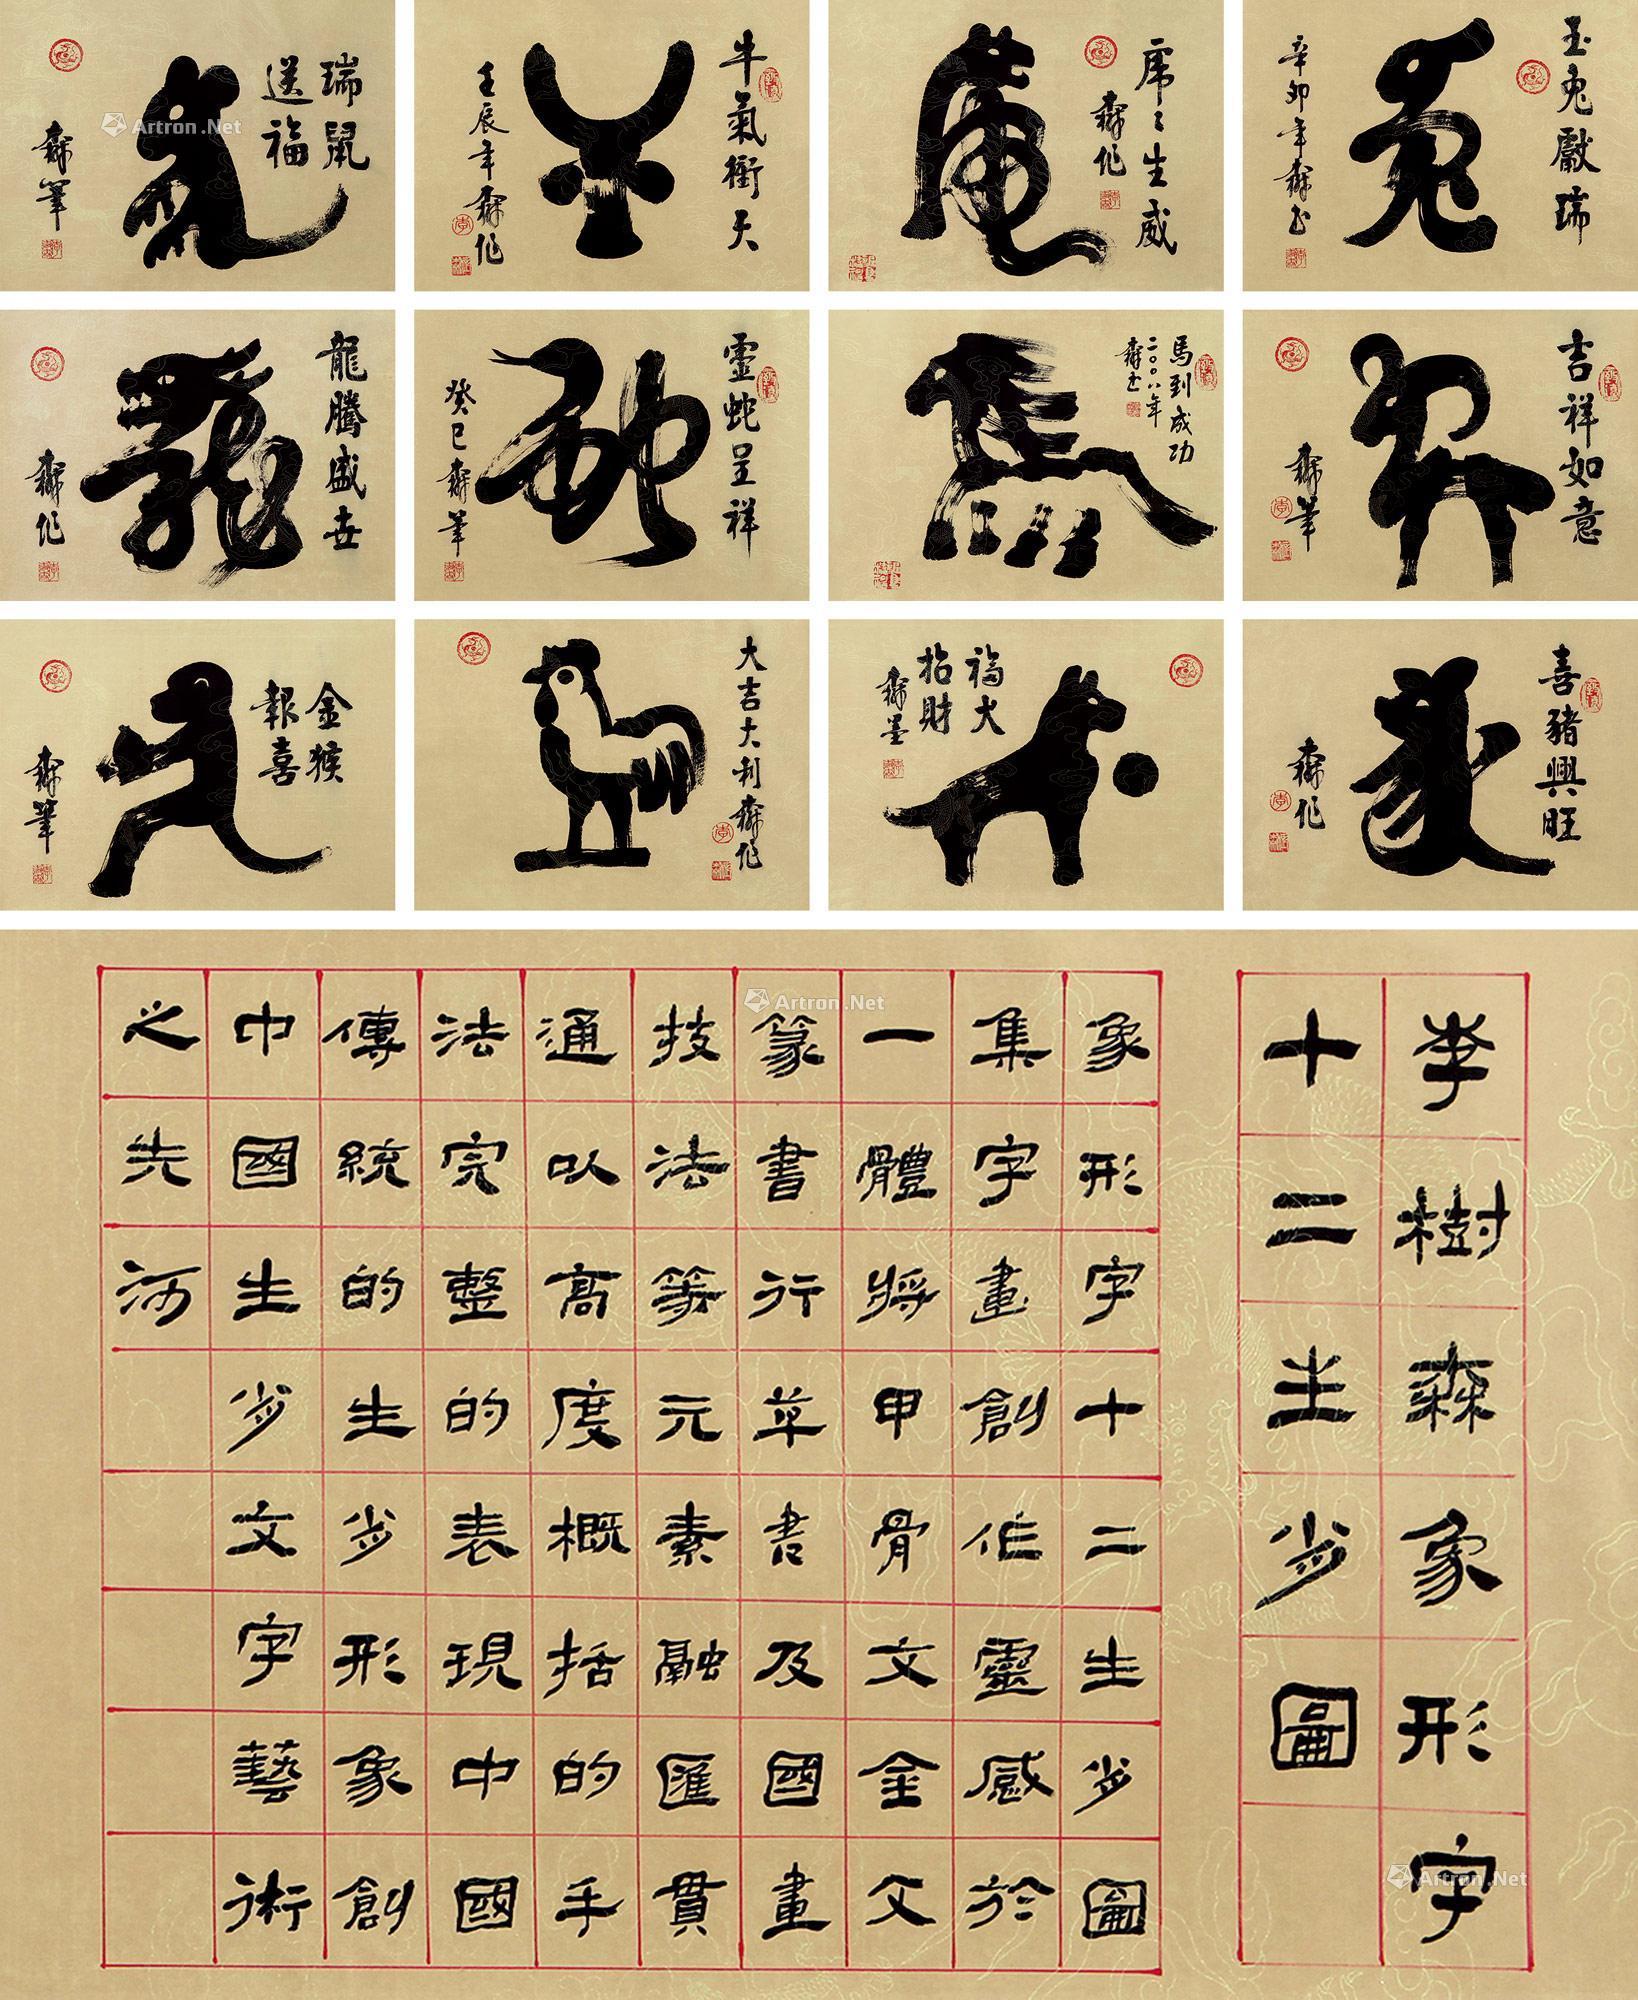 瑞鼠
送福
森筆
Artron.Net
牛氣衝天
壬辰年森作
虎〻生威
森作
玉兔獻瑞
辛卯年森書
龍騰盛世
森作
靈蛇呈祥
癸巳森筆
馬到成功
二〇〇八年
森書
吉祥如意
森筆
金猴
報喜
森筆
大吉大利森作
福犬
招財
森墨
喜豬興旺
森作
李樹森象形字
十二生肖圖
象形字十二生肖圖
集字畫創作靈感於
一體將甲骨文金文
篆書行草書及國畫
技法等元素融匯貫
通以高度概括的手
法完整的表現中國
傳統的生肖形象創
中國生肖文字藝術
之先河
Artron.Net
Artron.Net